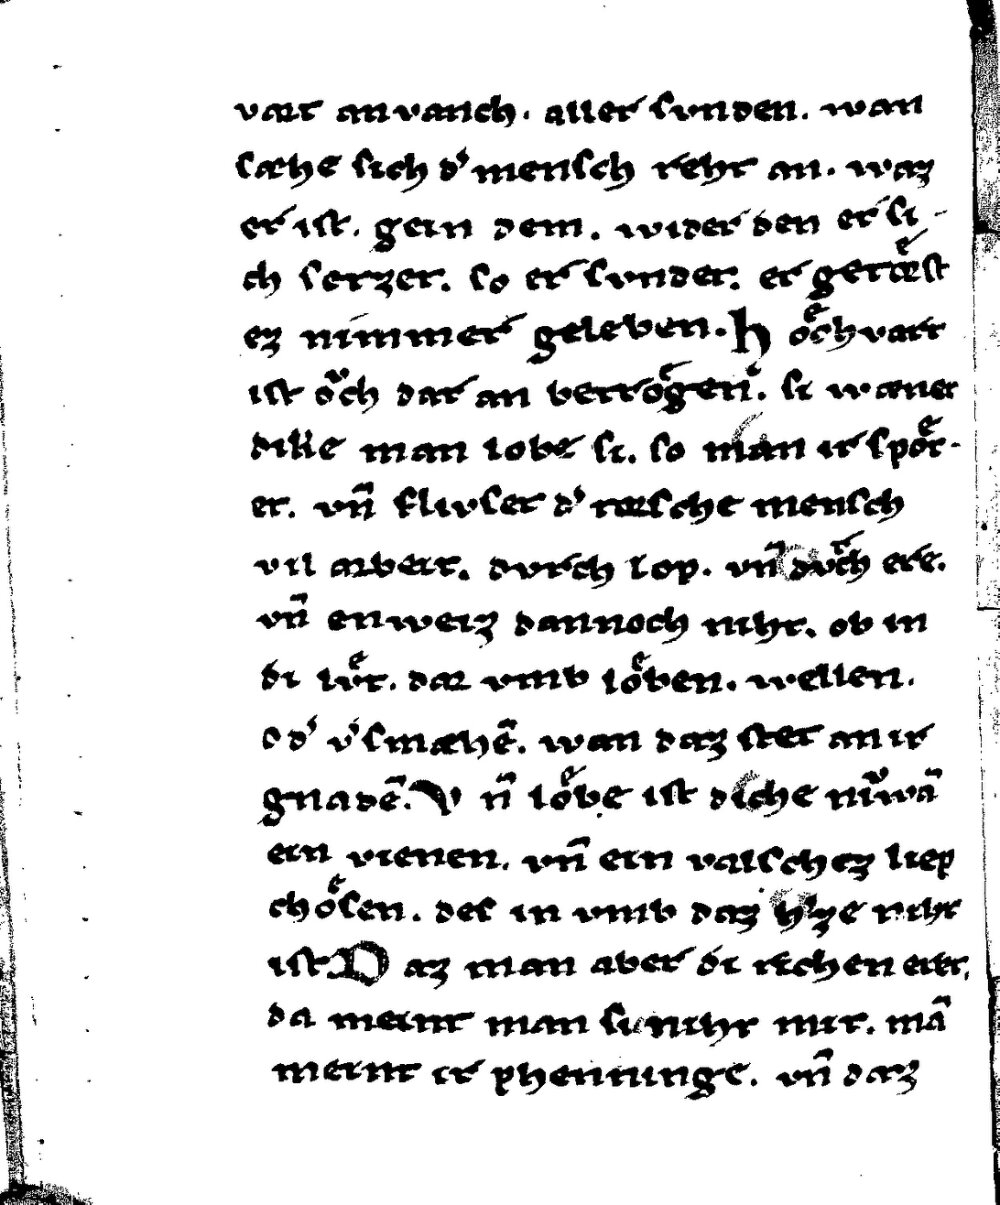 vart anvanch. aller sunden. wan
sæhe sich d' mensch reht an. waz
er ist. gein dem. wider den er si-
ch setzet. so er sundet. er getoͤrst
ez nimmer geleben. Hoͤchvart
ist oͮch dar an betroͤgen. si wænet
dike man lobe si. so man ir spoͤt-
et. vn̄ flivset d' tœrsche mensch
vil arbeit. durch lop. vn̄ dvrch ere.
vn̄ enweiz dannoch niht. ob in
di lvͤt. dar vmb loͤben. wellen.
od' v'smæhē. wan daz stet an ir
gnadē. Vn̄ loͤbe ist diche nivwā
ein vienen. vn̄ ein valschez liep
choͤsen. des in vmb daz h'ze niht
ist Daz man aber di richen eret,
da meint man si niht mit. mā
meint ir phenninge. vn̄ daz